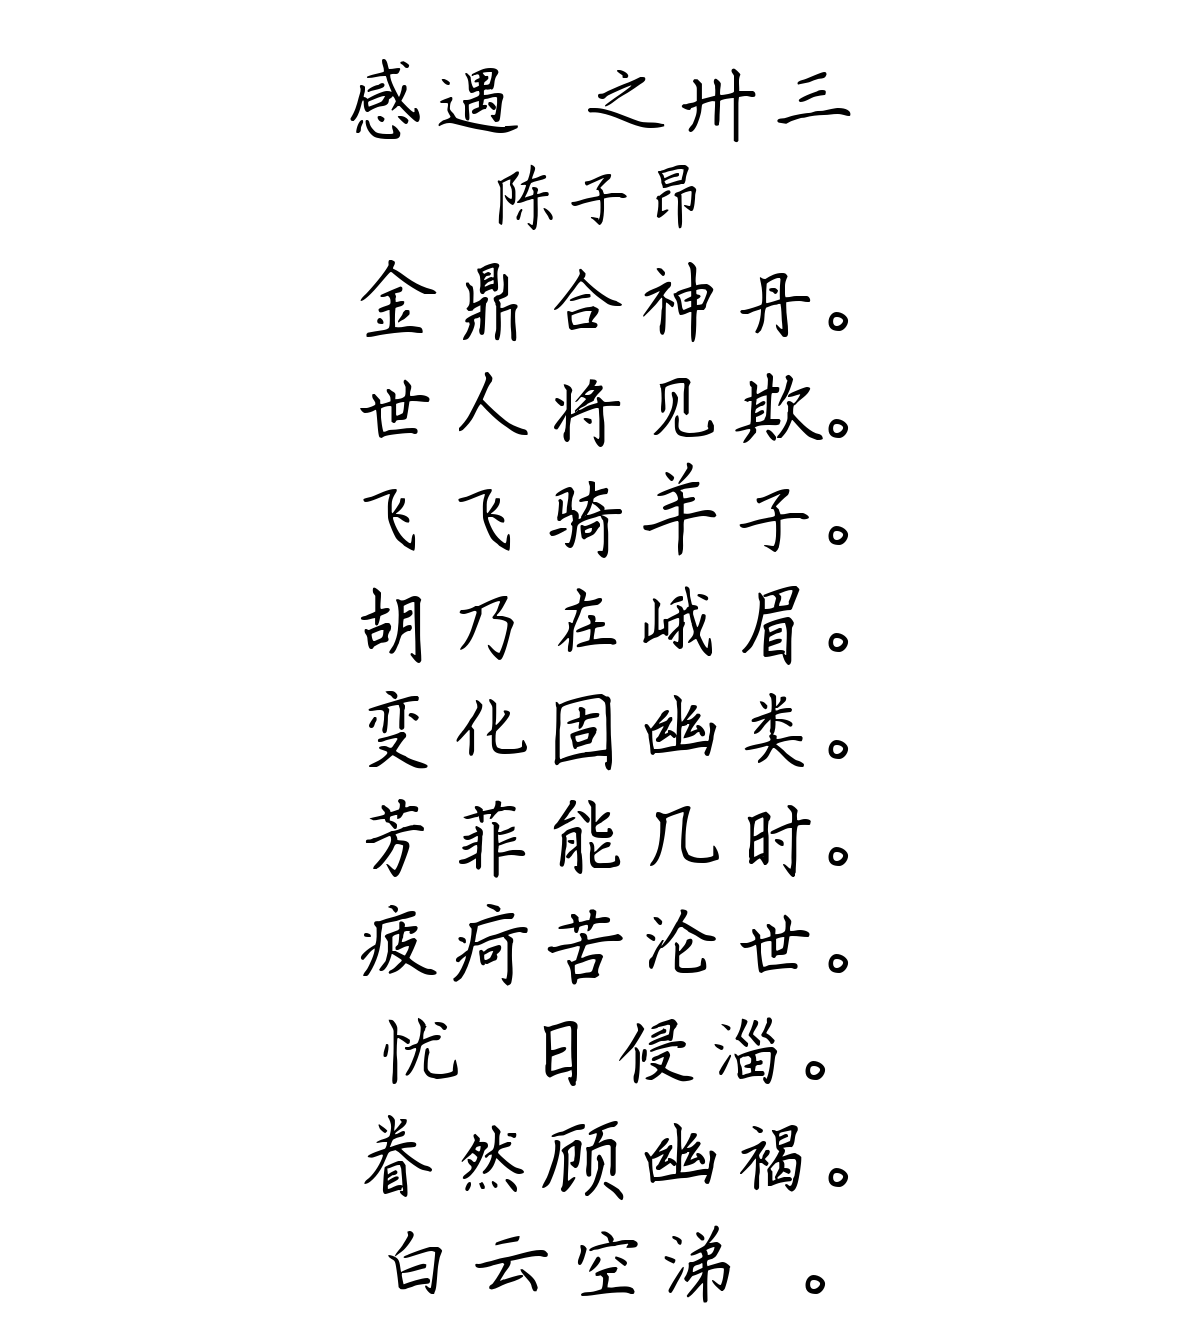 感遇 之卅三
陈子昂
金鼎合神丹。
世人将见欺。
飞飞骑羊子。
胡乃在峨眉。
变化固幽类。
芳菲能几时。
疲疴苦沦世。
忧 日侵淄。
眷然顾幽褐。
白云空涕 。